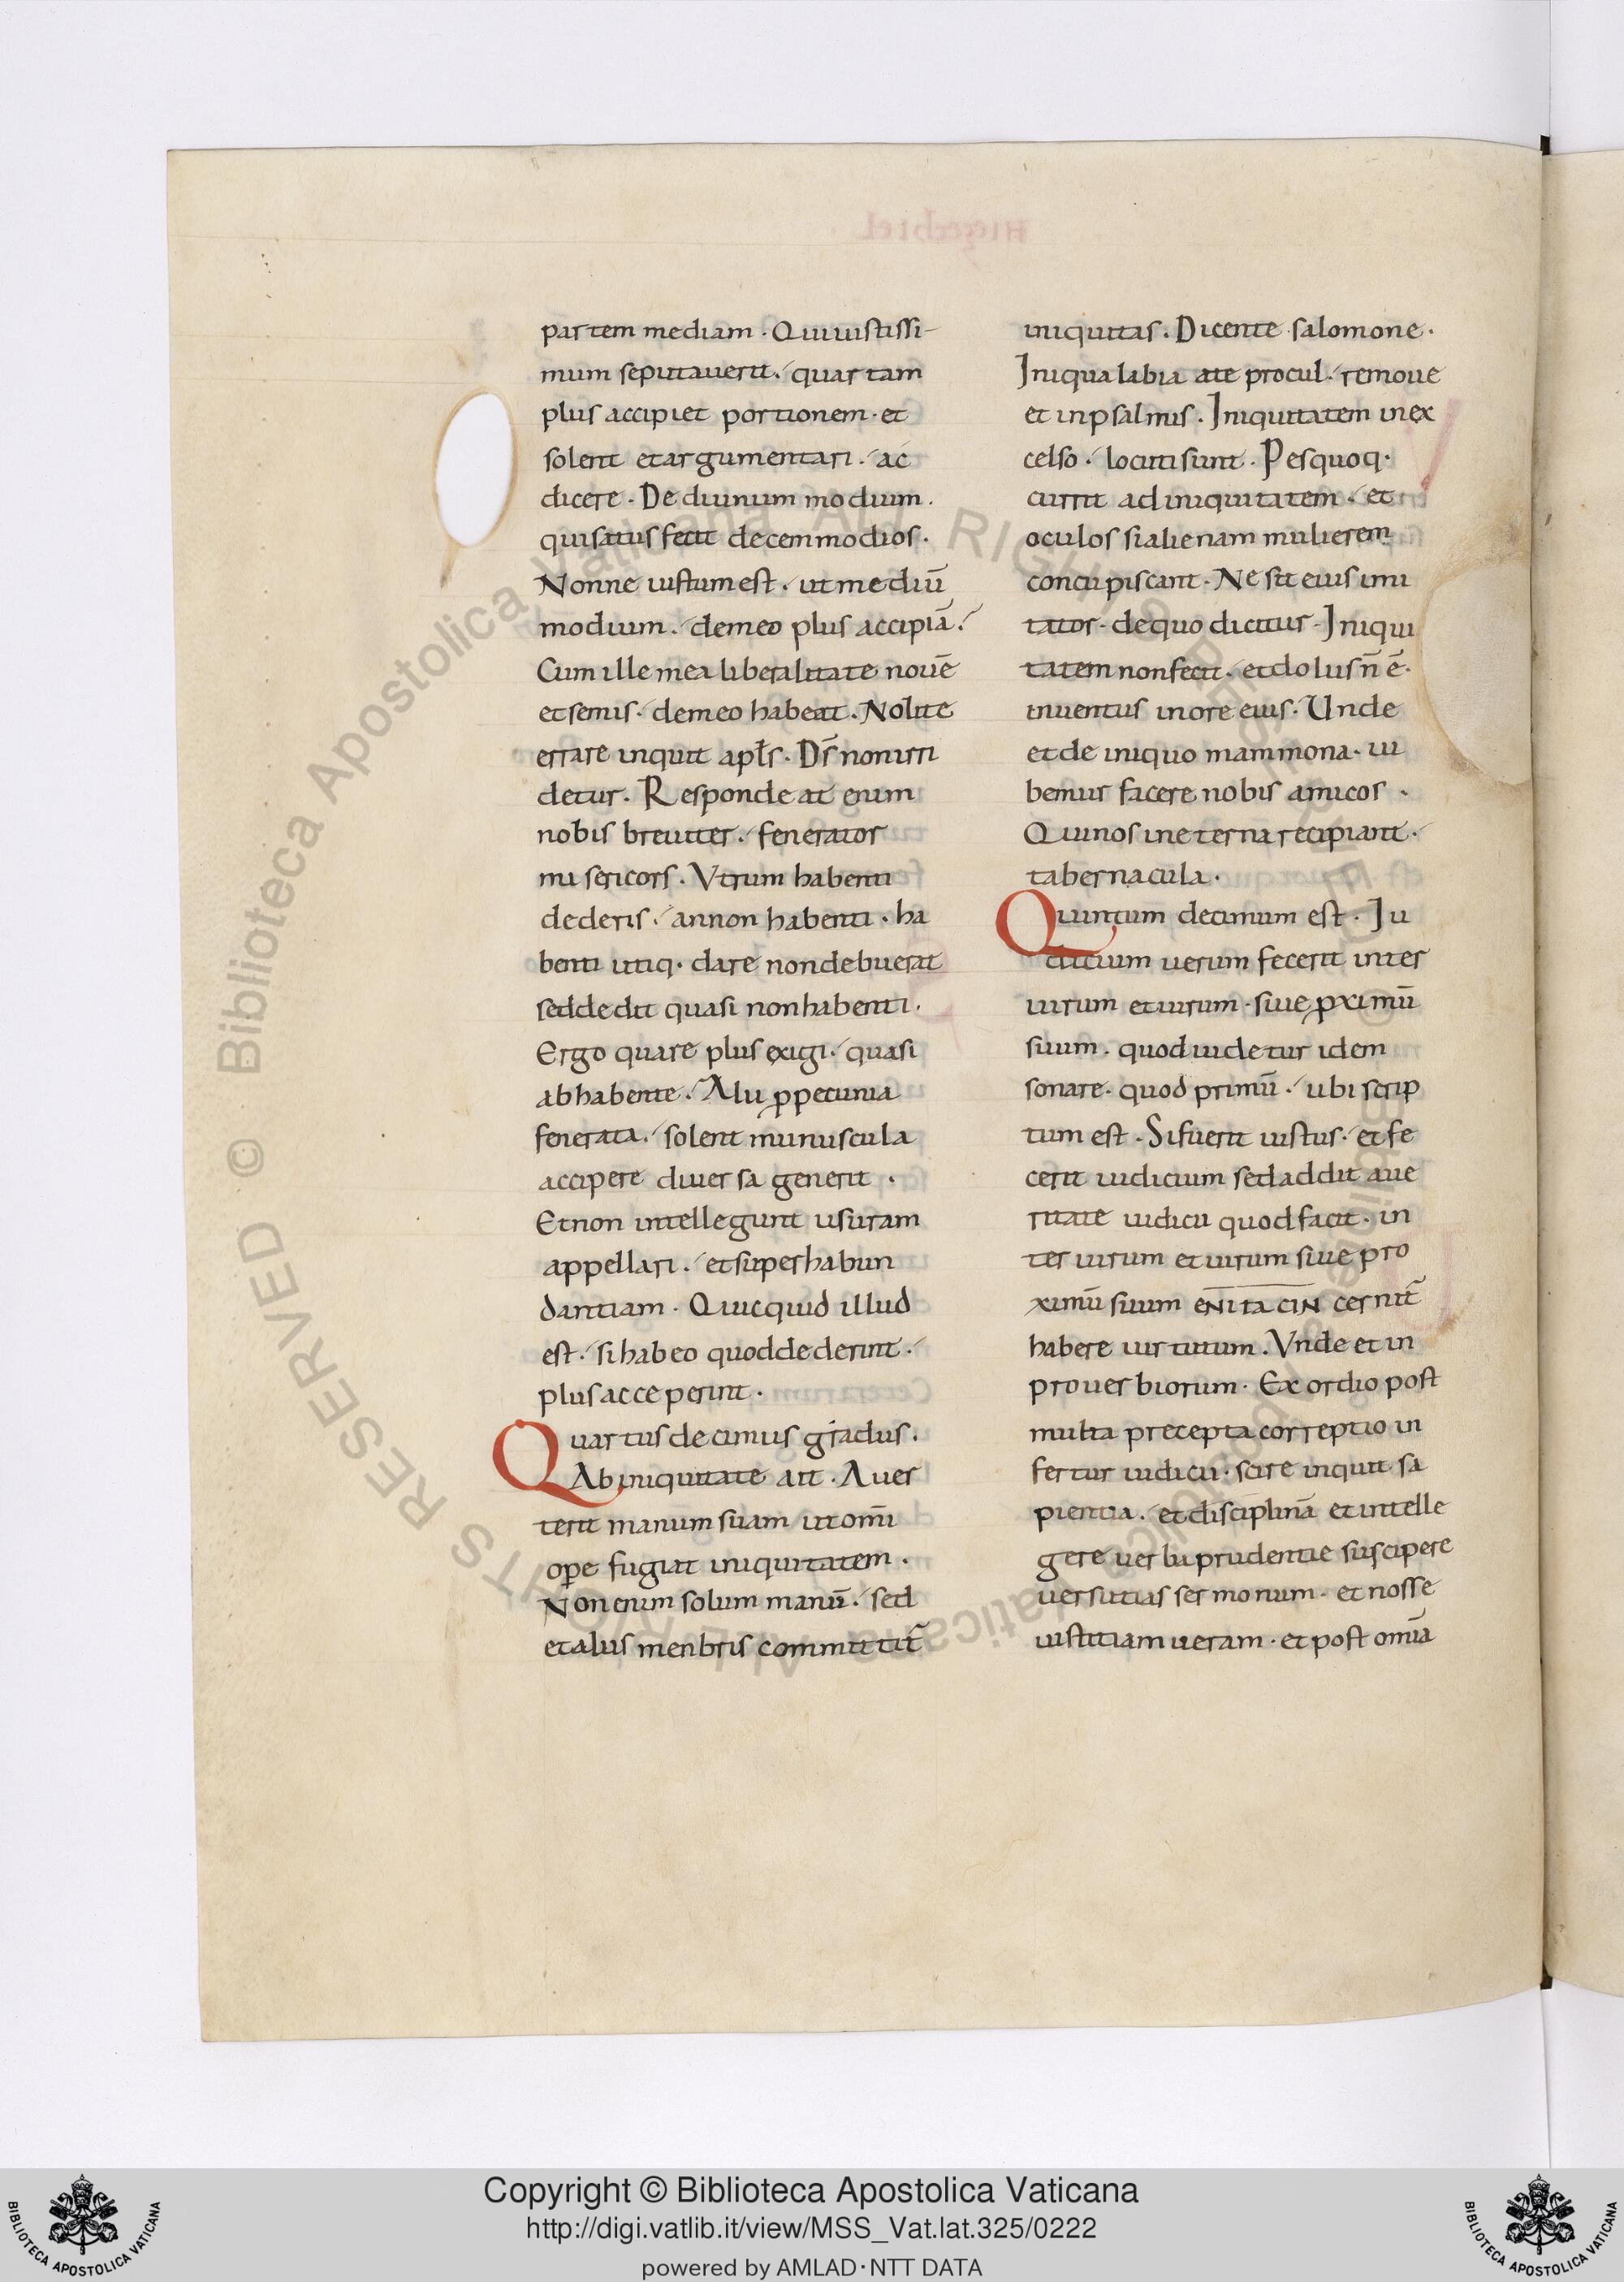 partem mediam · Qui iustissi-
mum se putauerit · quartam
plus accipiet portionem · et
solent et argumentari · ac
dicere · Dedi unum modium ·
qui satus fecit decem modios ·
Nonne iustum est · ut mediū
modium · de meo plus accipiā ·
Cum ille mea liberalitate nouē
et semis · de meo habeat · Nolite
errare inquit apłs · Ds̄ non irri
detur · Respondeat enim
nobis breuiter · fenerator
misericors · Vtrum habenti
dederis · an non habenti · ha
benti utiq· dare non debuerat
sed dedit quasi non habenti ·
Ergo quare plus exigi · quasi
ab habente · Alii ꝓ pecunia
fenerata · solent munuscula
accipere diuersa generit ·
Et non intellegunt usuram
appellari · et superhabun
dantiam · Quicquid illud
est · si habeo quod dederint ·
plus acceperint ·
Quartus decimus gradus ·
Ab iniquitate ait · Auer
terit manum suam ut om̄i
ope fugiat iniquitatem ·
Non enim solum manū · sed
et aliis menbris committit̄
iniquitas · Dicente salomone ·
Iniqua labia a te procul · remoue
et in psalmis · Iniquitatem in ex
celso · locuti sunt · Pes quoq·
currit ad iniquitatem · et
oculos si alienam mulierem
concupiscant · Ne sit eius imi
tator · de quo dicitur · Iniqui
tatem non fecit · et dolus n̄ ē ·
inuentus in ore eius · Unde
et de iniquo mammona · iu
bemur facere nobis amicos ·
Qui nos in eterna recipiant ·
tabernacula ·
Quintum decimum est · Iu
dicium uerum fecerit inter
uirum et uirum · siue ꝓximū
suum · quod uidetur idem
sonare · quod primū · ubi scrip
tum est · Si fuerit iustus · et fe
cerit iudicium sed addit aue
ritate iudicii quod facit · in
ter uirum et uirum siue pro
ximū suum ENITACIN cernit̄
habere uirtutum · Vnde et in
prouerbiorum · Exordio post
multa precepta correptio in
fertur iudicii · scire inquit sa
pientia · et disciplinā et intelle
gere uerbi prudentie suscipere
uersutias sermonum · et nosse
iustitiam ueram · et post omīa
Copyright © Biblioteca Apostolica Vaticana
http://digi.vatlib.it/view/MSS_Vat.lat.325/0222
powered by AMLAD·NTT DATA
BIBLIOTECA APOSTOLICA VATICANA
BIBLIOTECA APOSTOLICA VATICANA